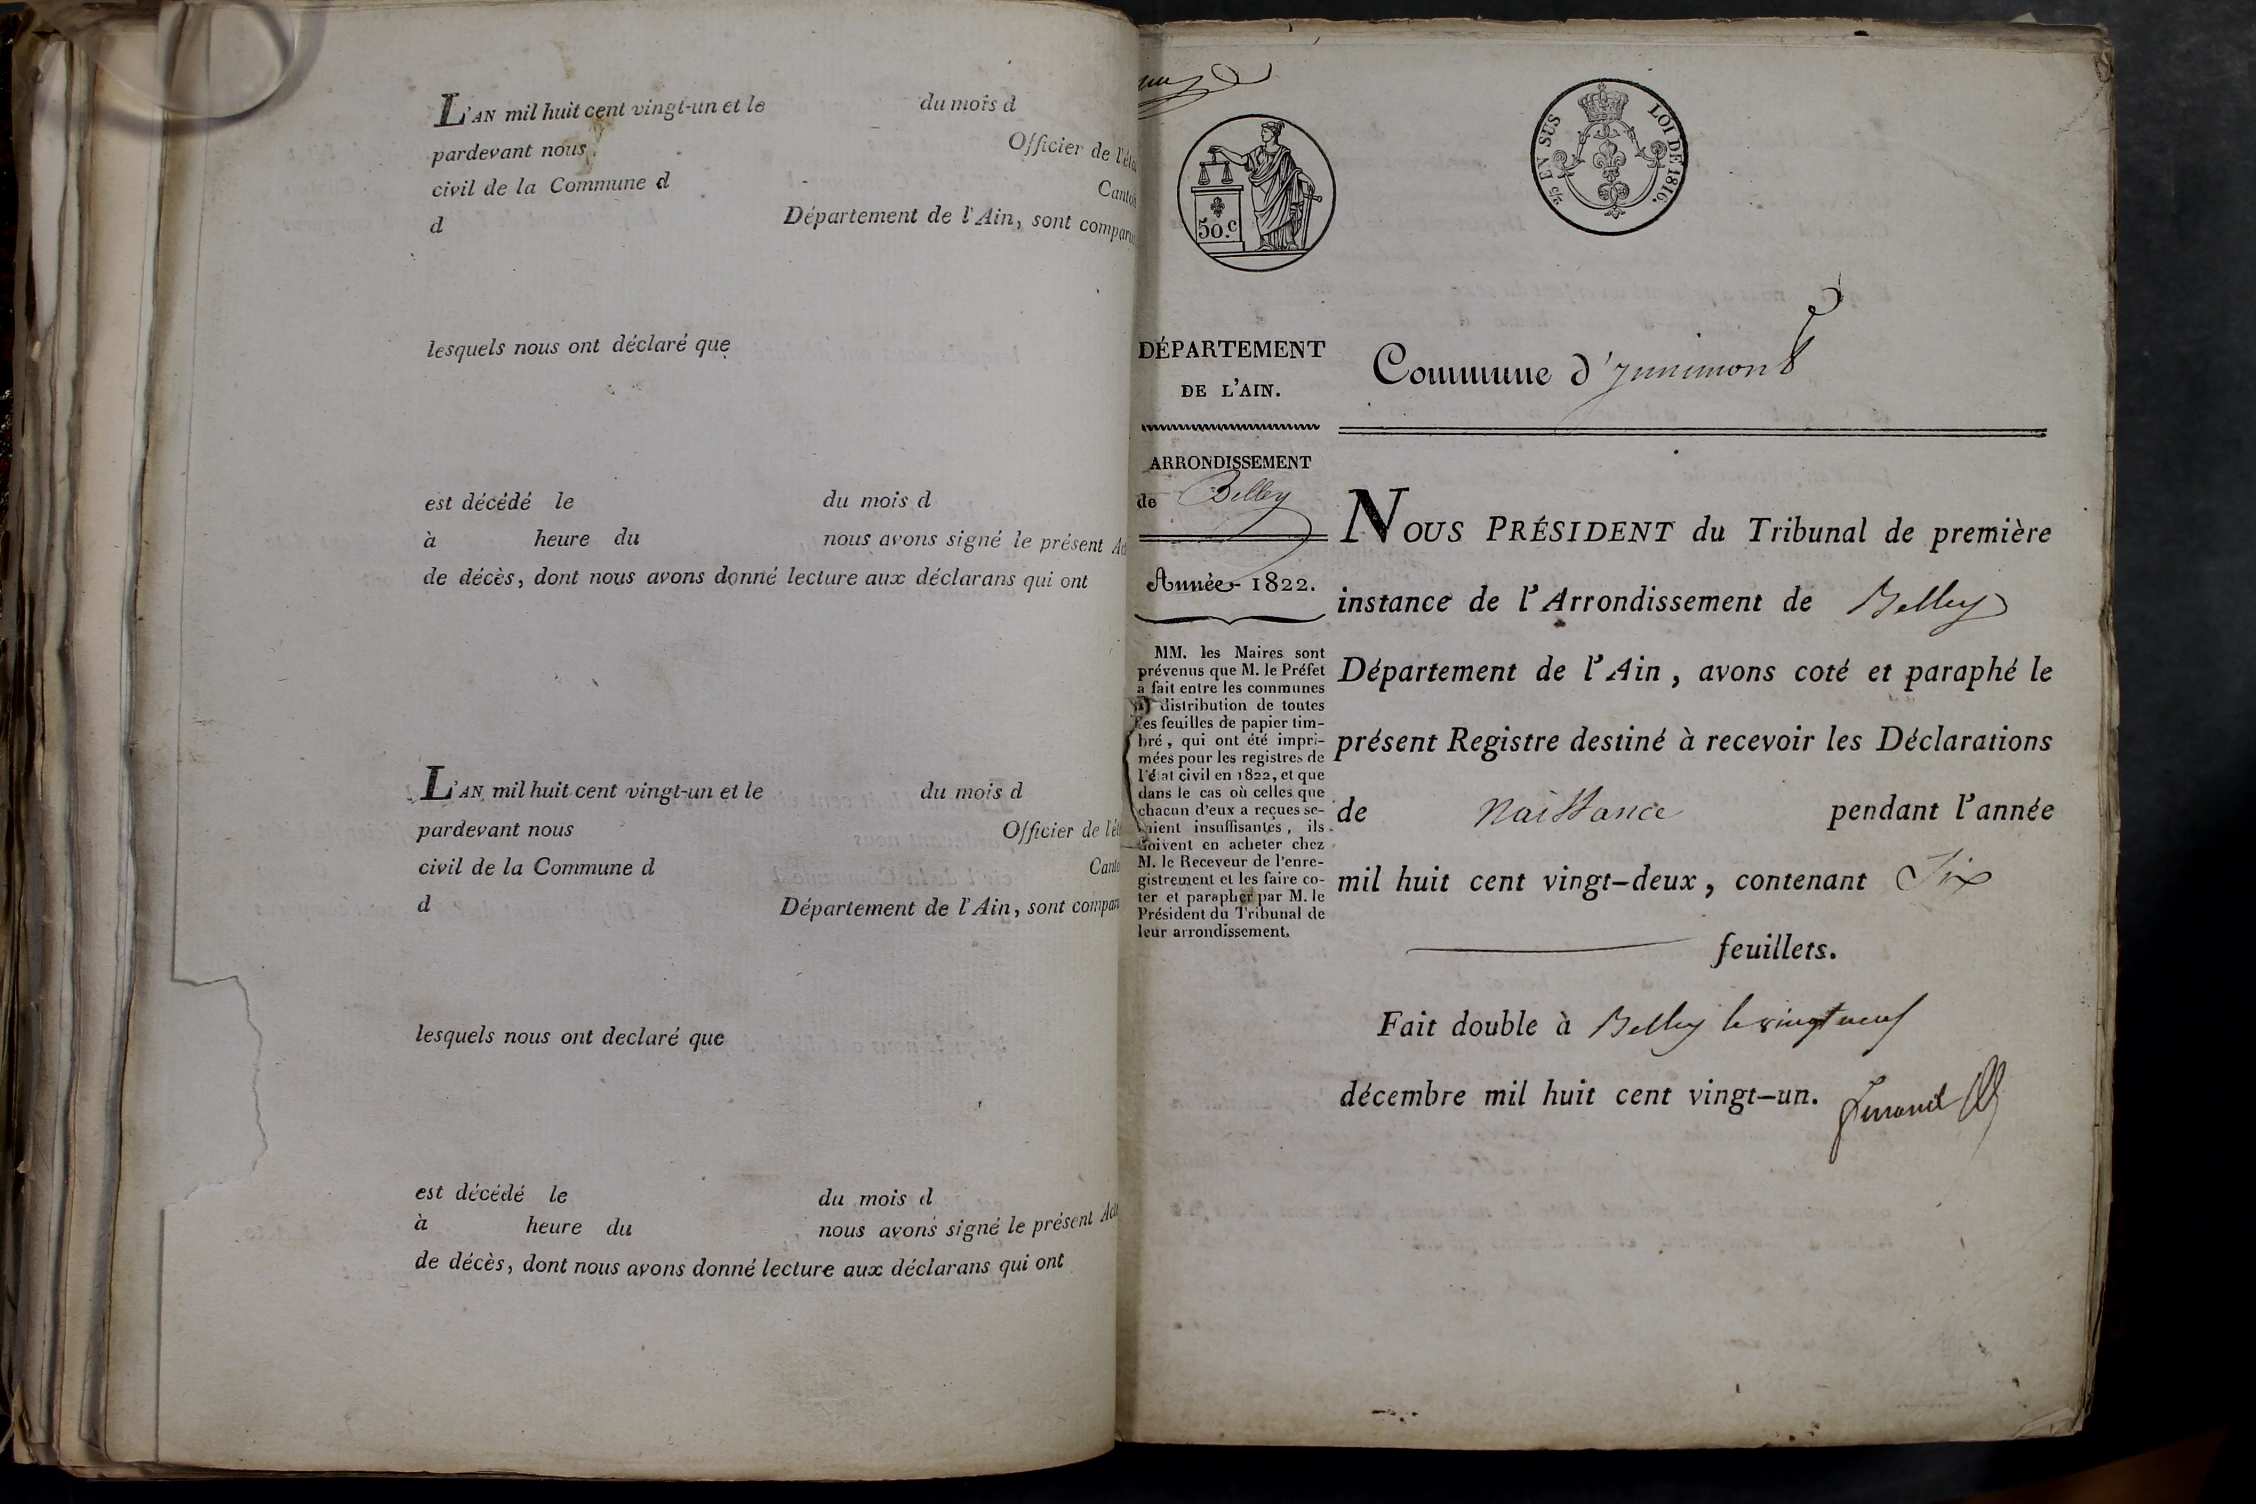 L'AN mil huit cent vingt-un et le du mois d
pardevant nous Officier de l'éta
civil de la Commune d Canton
d Département de l'Ain, sont comparu
lesquels nous ont déclaré que
est décédé le du mois d
à heure du nous avons signé le présent Ac
de décès, dont nous avons donné lecture aux déclarans qui ont
L'AN mil huit cent vingt-un et le du mois d
pardevant nous Officier de l'ét
civil de la Commune d Canto
d Département de l'Ain, sont compar
lesquels nous ont declaré que
est décédé le du mois d
à heure du nous avons signé le présent Acte
de décès, dont nous avons donné lecture aux déclarans qui ont
50.c
ET SUS LOI DE 1816.
DÉPARTEMENT
DE L'AIN.
ARRONDISSEMENT
de Belley
Année 1822.
MM. les Maires sont
prévenus que M. le Préfet
a fait entre les communes
la distribution de toutes
les feuilles de papier tim-
bré, qui ont été impri-
mées pour les registres de
l'état civil en 1822, et que
dans le cas où celles que
chacun d'eux a reçues se-
raient insuffisantes, ils
doivent en acheter chez
M. le Receveur de l'enre-
gistrement et les faire co-
ter et parapher par M. le
Président du Tribunal de
leur arrondissement.
Commune d'ynnimont
NOUS PRÉSIDENT du Tribunal de première
instance de l'Arrondissement de Belley
Département de l'Ain, avons coté et paraphé le
présent Registre destiné à recevoir les Déclarations
de naissance pendant l'année
mil huit cent vingt-deux, contenant Six
feuillets.
Fait double à Belley le vingt neuf
décembre mil huit cent vingt-un.